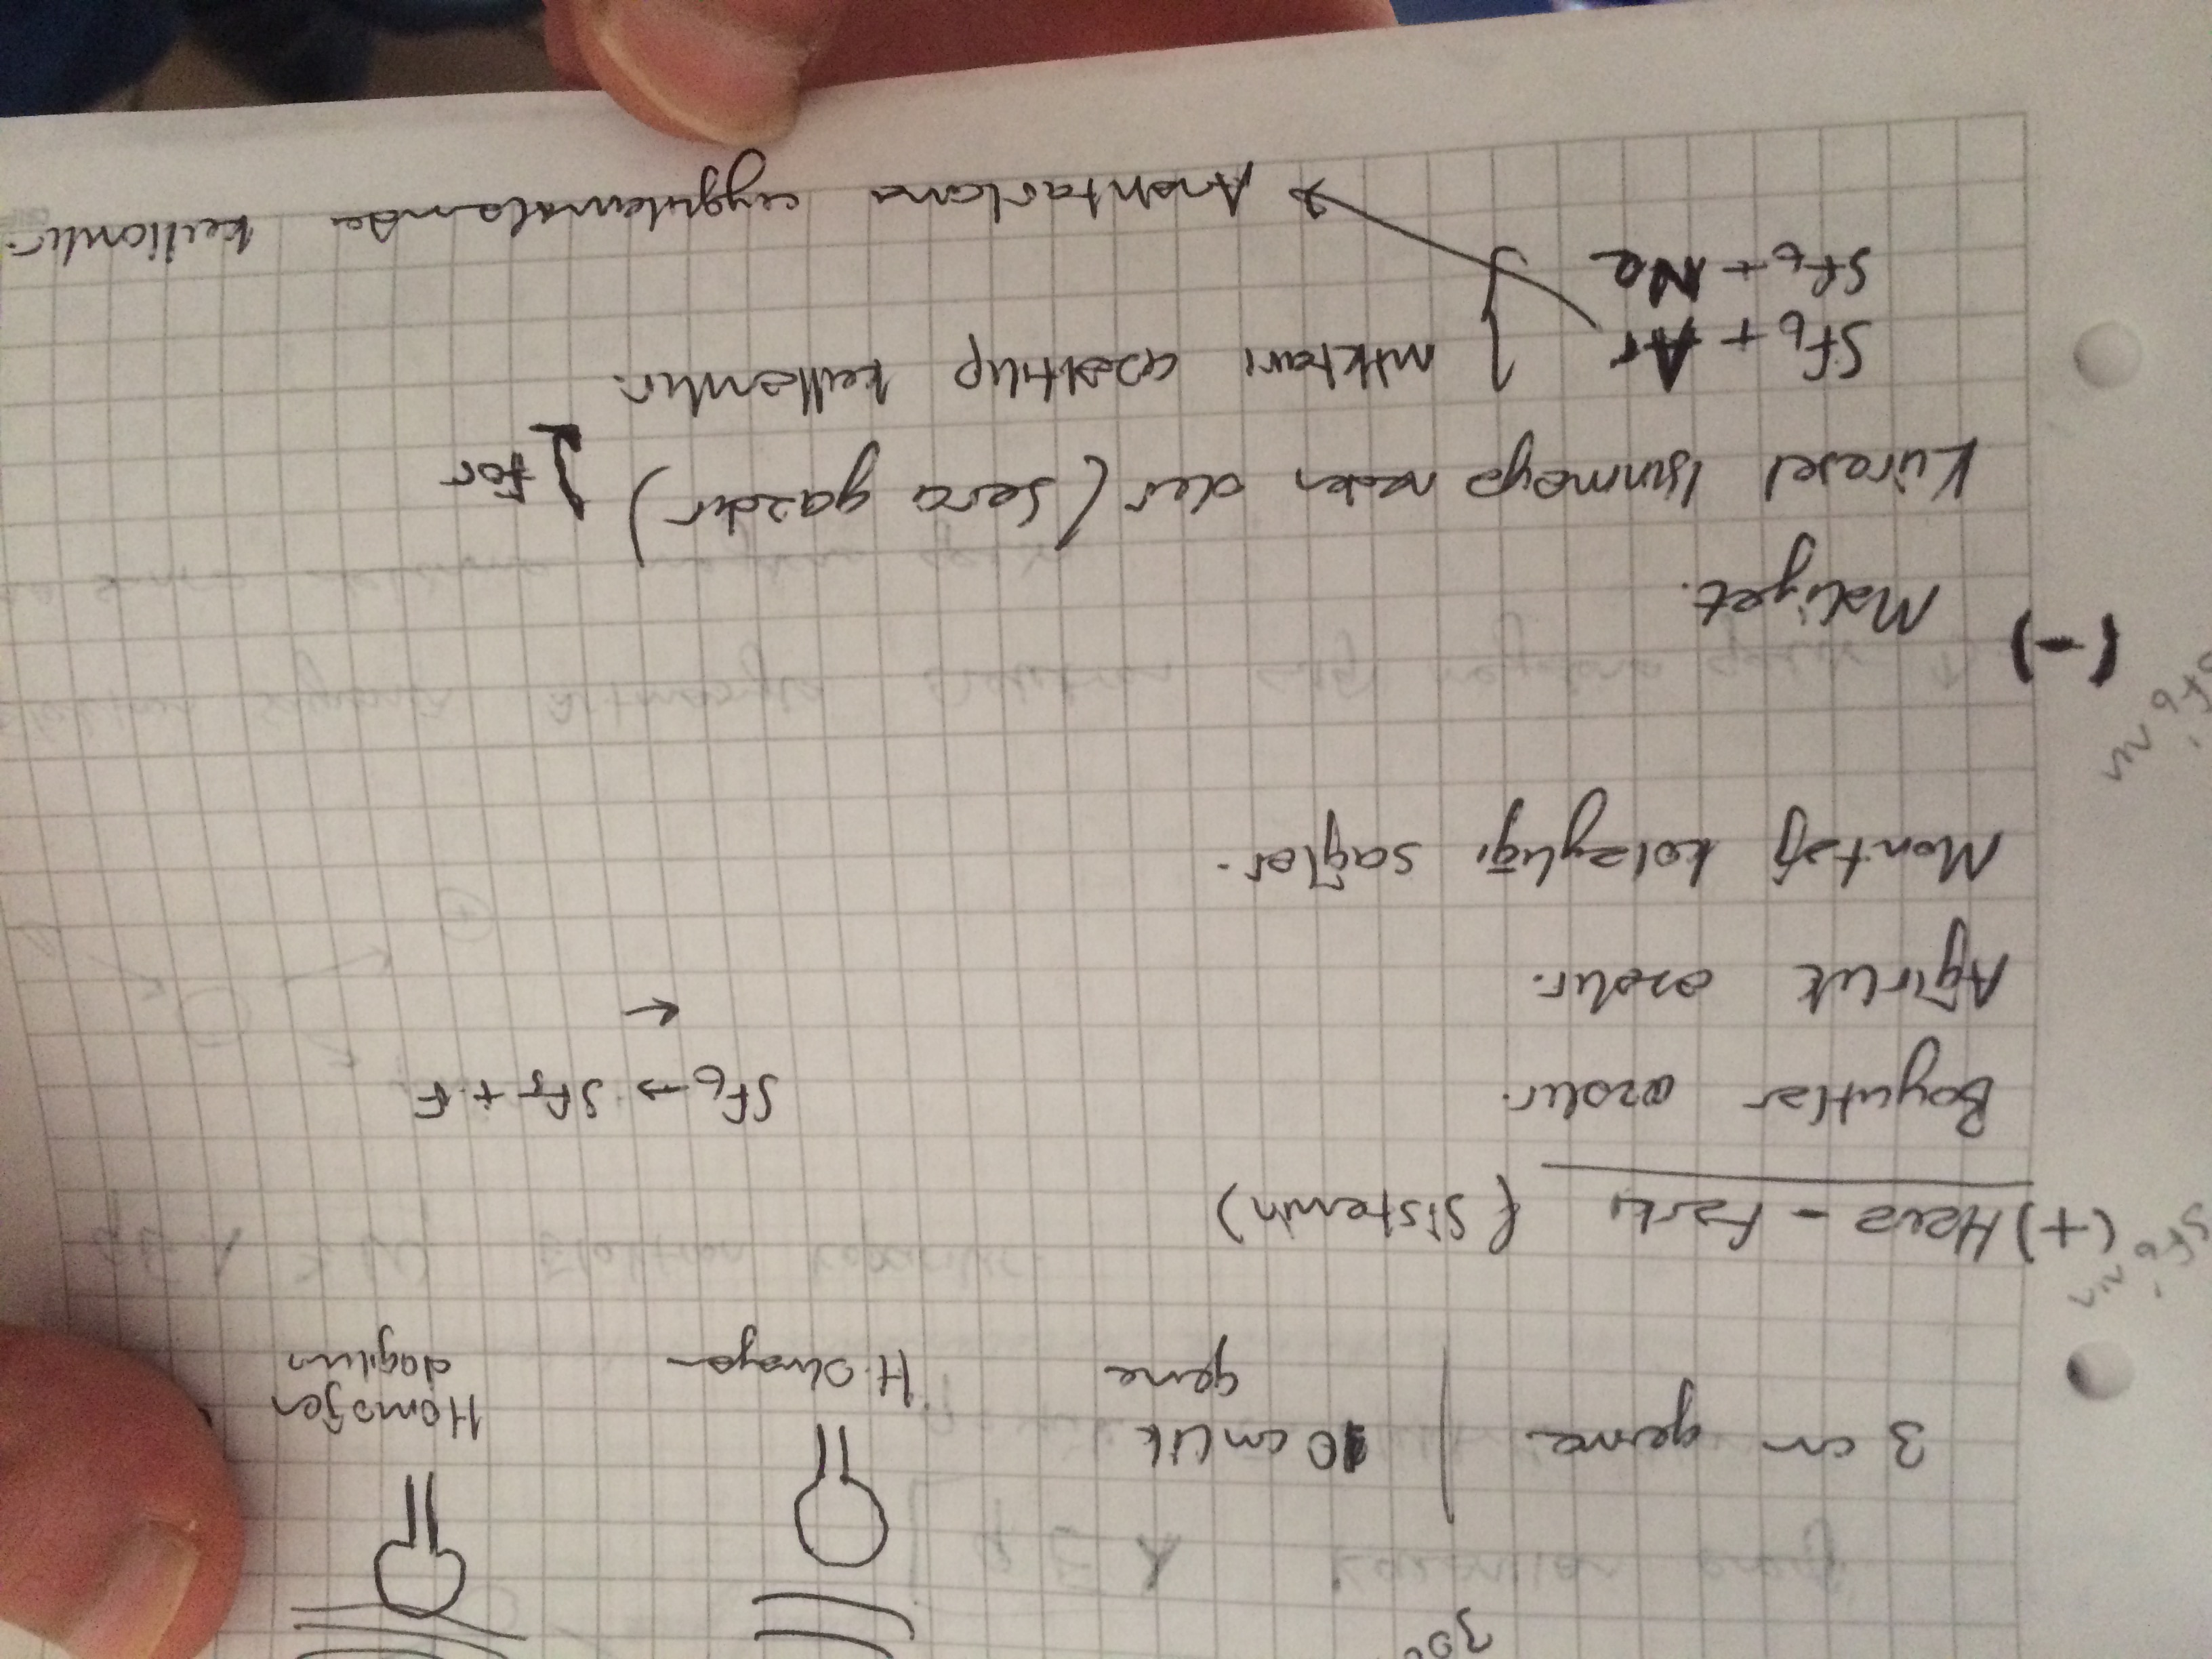 300
3 cm germe | 10 cmlik
germe
H. Olmayan
Homojen
dağılım
Sf6'nın
(+) Hava - farkı (Sistemin)
Boyutlar azdır.
Sf6 → Sf5 + F
←
Ağırlık azdır.
Montajj kolaylığı sağlar.
Sf6'nın
(-)
Maliyet.
Küresel Isınmaya neden olur (Sera gazıdır)
For
Sf6 + Ar } miktarı azaltılıp kullanılır.
Sf6 + Ne
Anahtarlama uygulamalarında kullanılır.